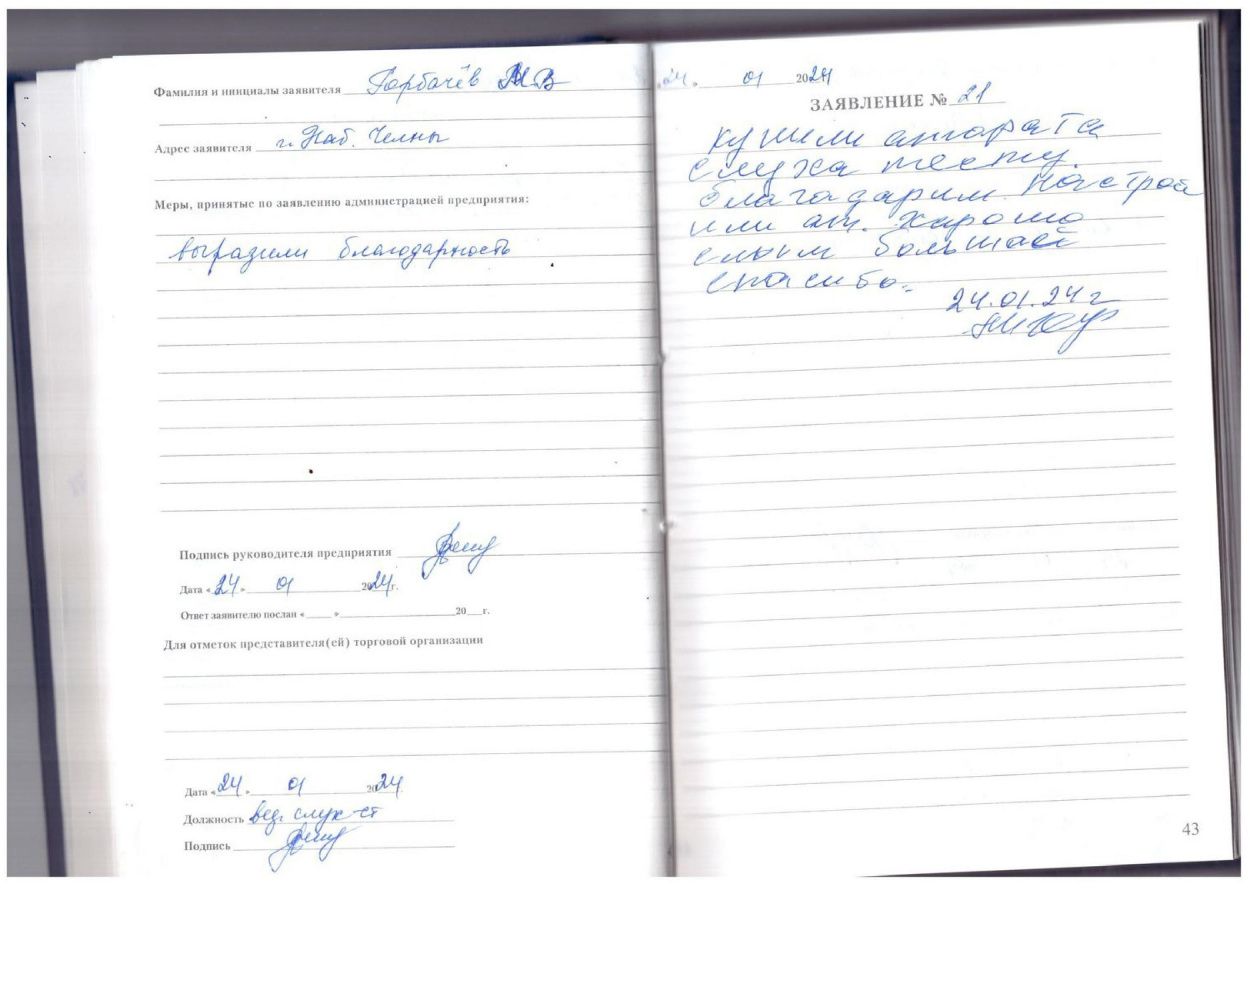 Фамилия и инициалы заявителя Горбачёв М В
Адрес заявителя г. Наб. Челны
Меры, принятые по заявлению администрацией предприятия:
выразили благодарность
Подпись руководителя предприятия
Дата «24» 01 2024 г.
Ответ заявителю послан « » 20 г.
Для отметок представителя(ей) торговой организации
Дата «24» 01 2024
Должность вед. слух-ст
Подпись
«24» 01 2024
ЗАЯВЛЕНИЕ № 21
купили апарата
слуха тести.
благодарим. Настрои
или ап. харошо
слыш большаеі
спасибо.
24.01.24 г
43